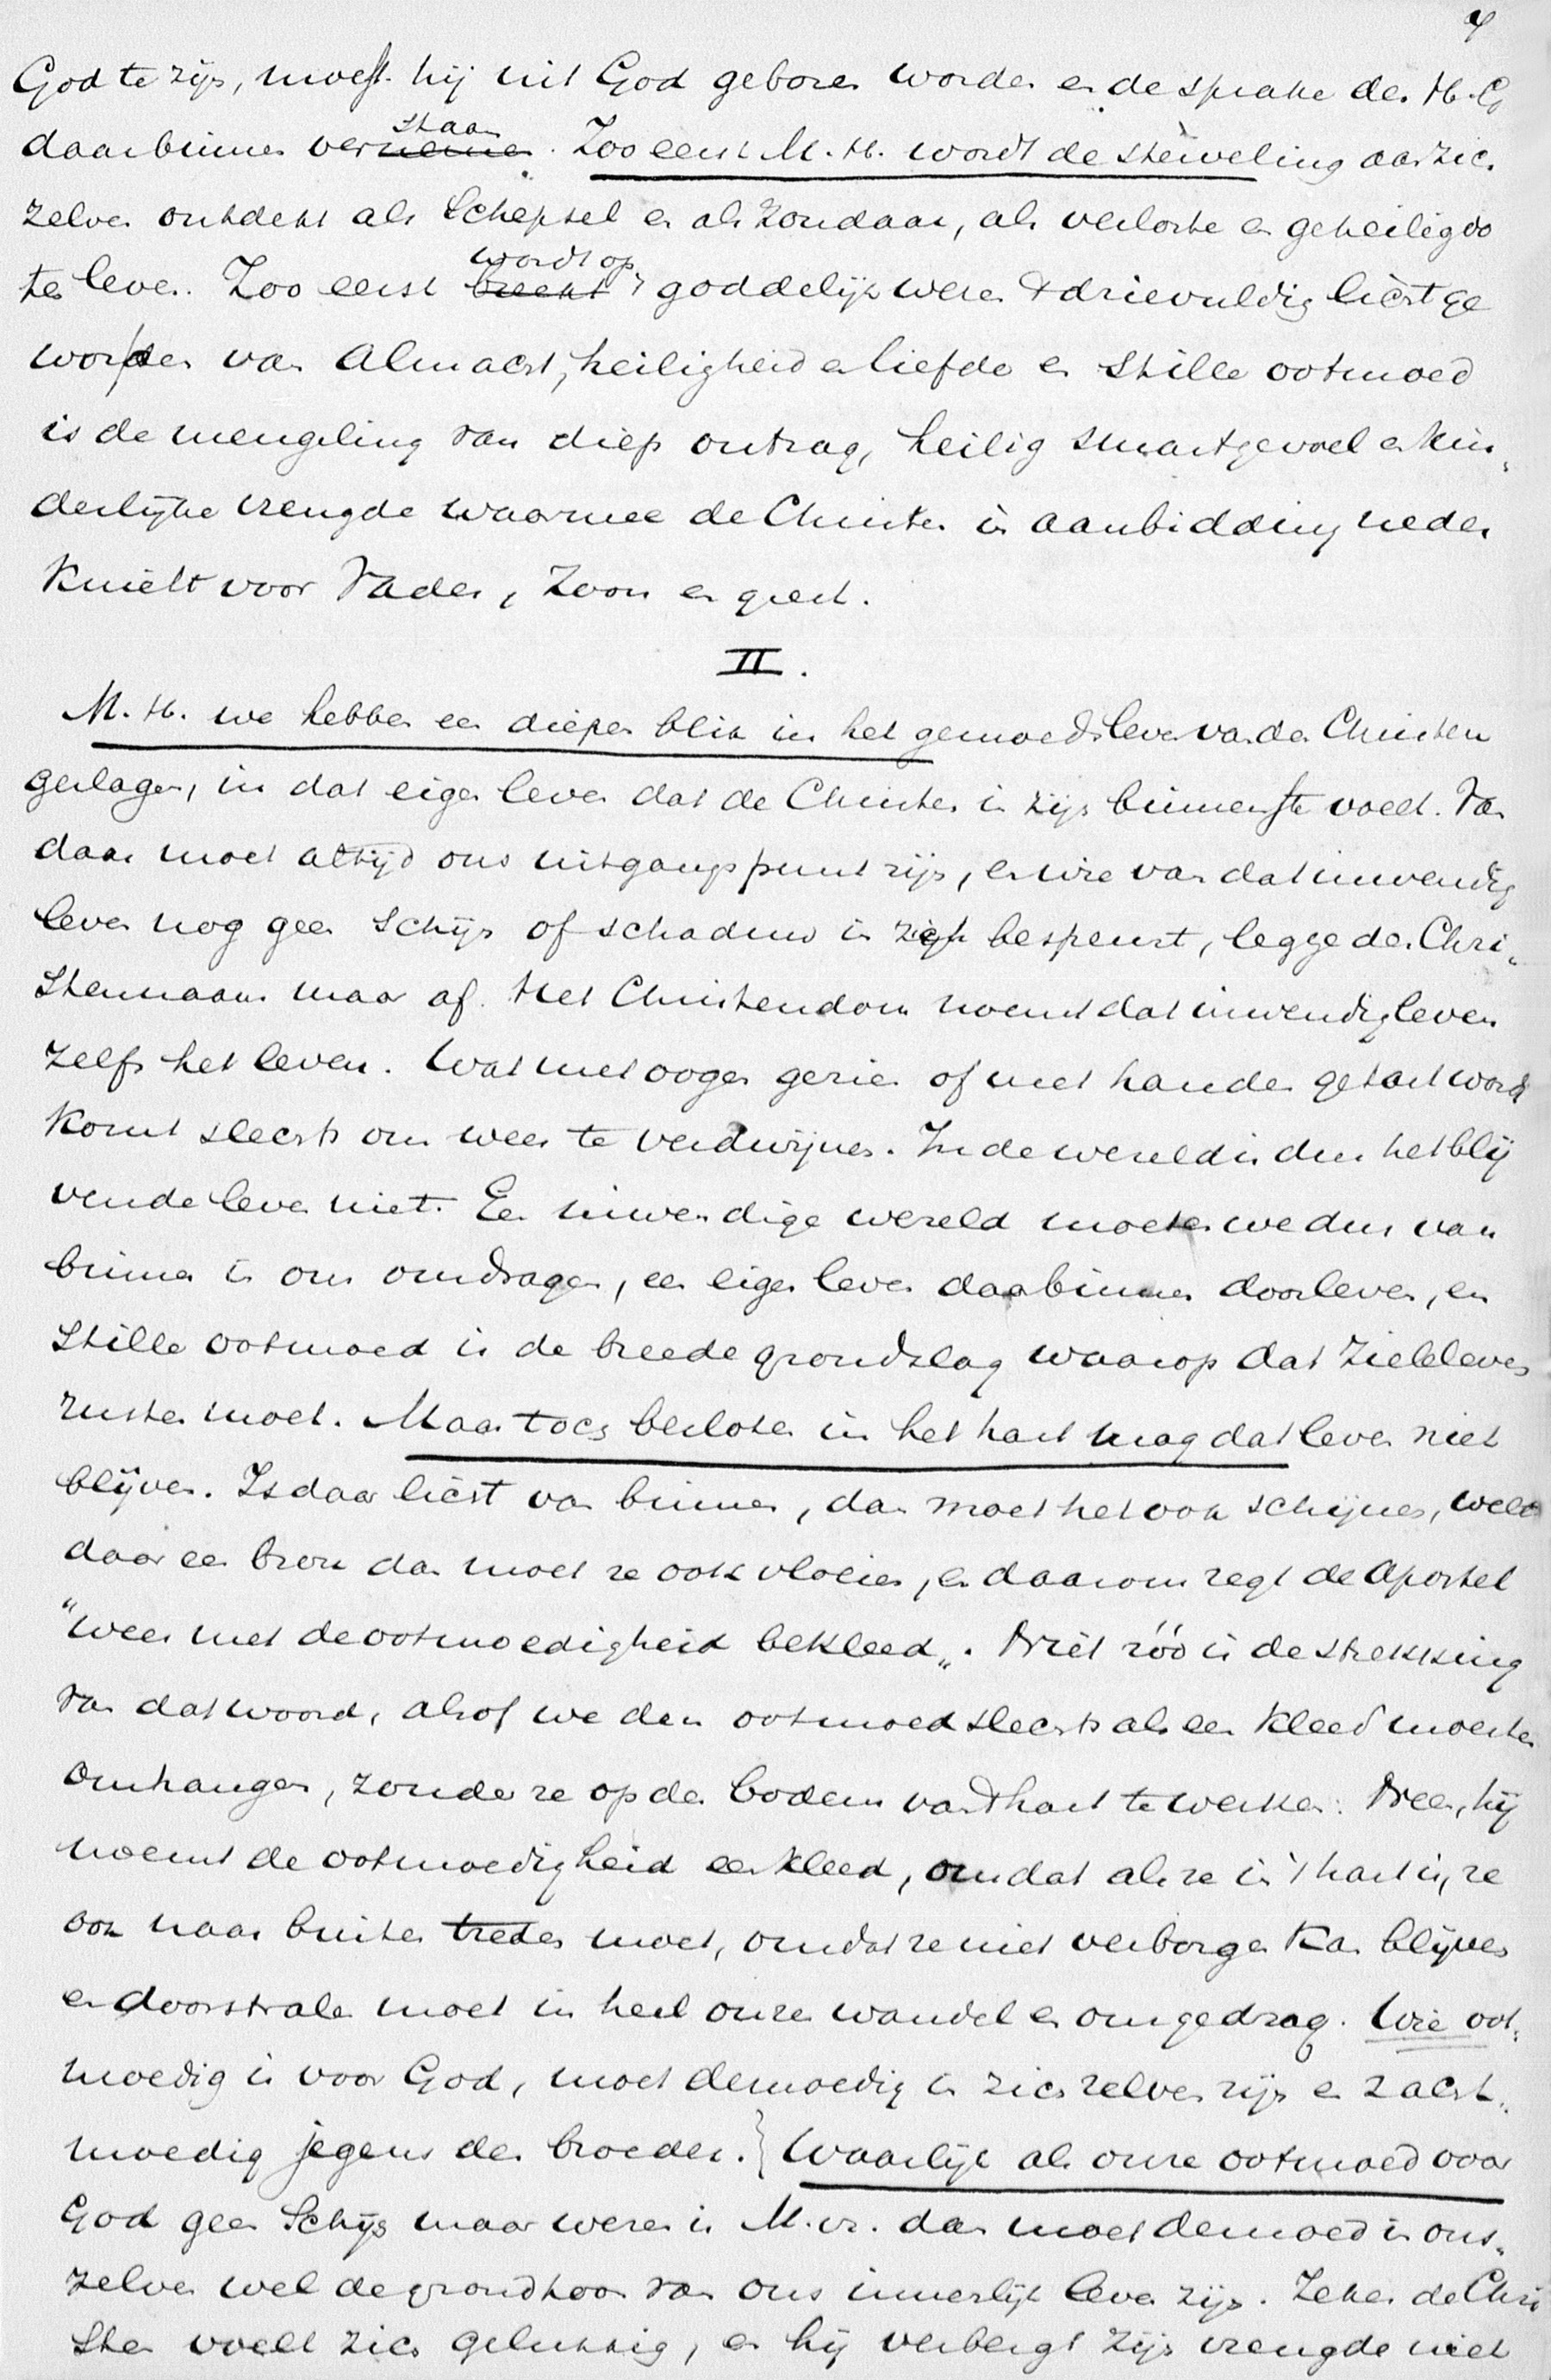 4
God te zijn, moest hij uit God geboren worden en de sprake des H. G.
daarbinnen verstaan. Zoo eerst M. H. wordt de sterveling aan zich
zelven ontdekt als schepsel en als zondaar, als verloste en geheiligde
ten leven. Zoo eerst wordt op 't goddelijk wezen 't drievuldig licht ge
worpen van Almacht, heiligheid en liefde en stille ootmoed
is de mengeling van diep ontzag, heilig smartgevoel en kin„
derlijke vreugde waarmee de Christen in aanbidding neder
knielt voor Vader, Zoon en geest.
II.
M. H. we hebben een diepen blik in het gemoedsleven van den Christen
geslagen, in dat eigen leven dat de Christen in zijn binnenste voelt. Van
daar moet altijd ons uitgangspunt zijn, en wie van dat inwendig
leven nog geen schijn of schaduw in zich bespeurt, legge den Chri„
stennaam maar af. Het Christendom noemt dat inwendig leven
zelfs het leven. Wat met oogen gezien of met handen getast wordt
komt slechts om weer te verdwijnen. In de wereld is dus het blij
vende leven niet. Een inwendige wereld moeten we dus van
binnen in ons omdragen, een eigen leven daarbinnen doorleven, en
stille ootmoed is de breede grondslag waarop dat zieleleven
rusten moet. Maar toch besloten in het hart mag dat leven niet
blijven. Is daar licht van binnen, dan moet het ook schijnen, welt
daar een bron dan moet ze ook vloeien, en daarom zegt de Apostel
"wees met de ootmoedigheid bekleed„. Niet zóó is de strekking
van dat woord, alsof we den ootmoed slechts als een kleed moesten
omhangen, zonder ze op den bodem van 't hart te werken. Neen, hij
noemt de ootmoedigheid een kleed, omdat als ze in 't hart is, ze
ook naar buiten treden moet, omdat ze niet verborgen kan blijven
en doorstralen moet in heel onzen wandel en omgedrag. Wie oot„
moedig is voor God, moet demoedig in zich zelven zijn en zacht„
moedig jegens den broeder. } Waarlijk als onze ootmoed voor
God geen schijn maar wezen is M. vr. dan moet demoed in ons„
zelven wel de grondtoon van ons innerlijk leven zijn. Zeker de Chri
sten voelt zich gelukkig, en hij verbergt zijn vreugde niet